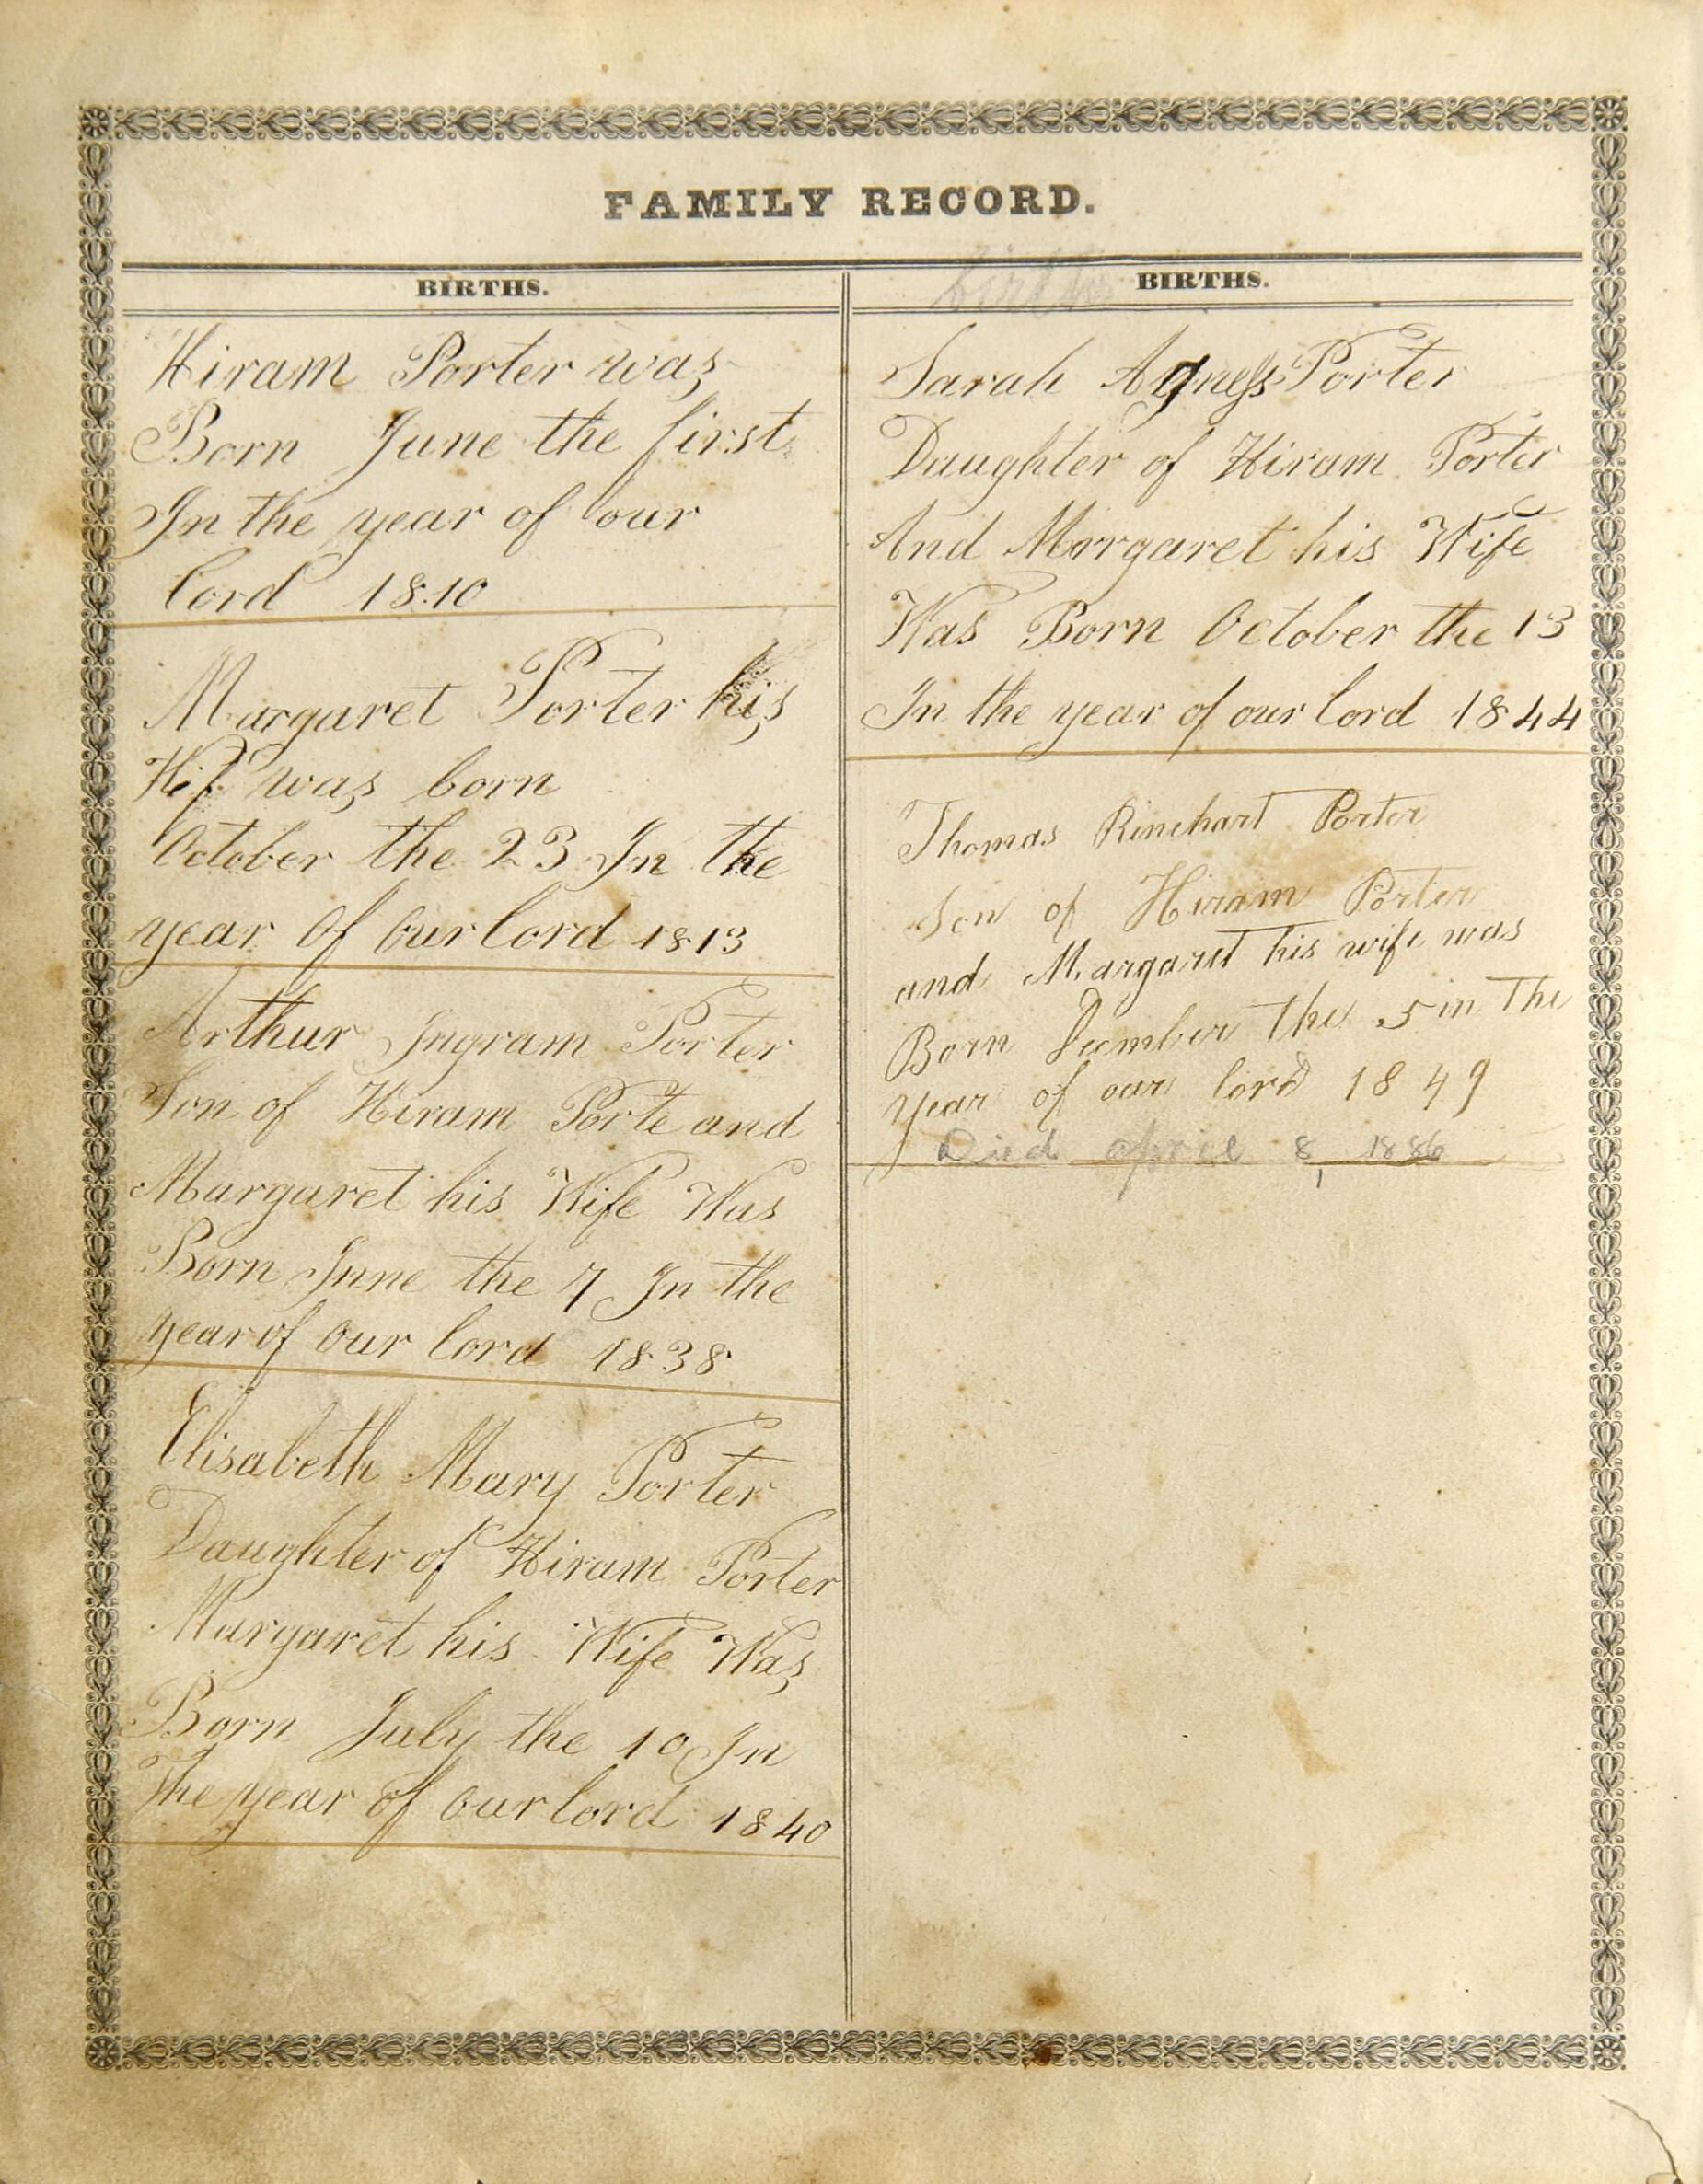 FAMILY RECORD.
BIRTHS.
Hiram Porter was
Born June the first
In the year of our
lord 1810
Margaret Porter his
Wif was born
October the 23 In the
year Of Our Lord 1813
Arthur Ingram Porter
Son of Hiram Porte and
Margaret his Wife Was
Born June the 7 In the
year of Our Lord 1838
Elisabeth Mary Porter
Daughter of Hiram Porter
Margaret his Wife Was
Born July the 10 In
The year of Our lord 1840
births
BIRTHS.
Sarah Agness Porter
Daughter of Hiram Porter
And Margaret his Wife
Was Born October the 13
In the year of our Lord 1844
Thomas Rinehart Porter
Son of Hiram Porter
and Margaret his wife was
Born December the 5 in The
year of our lord 1849
Died april 8, 1886